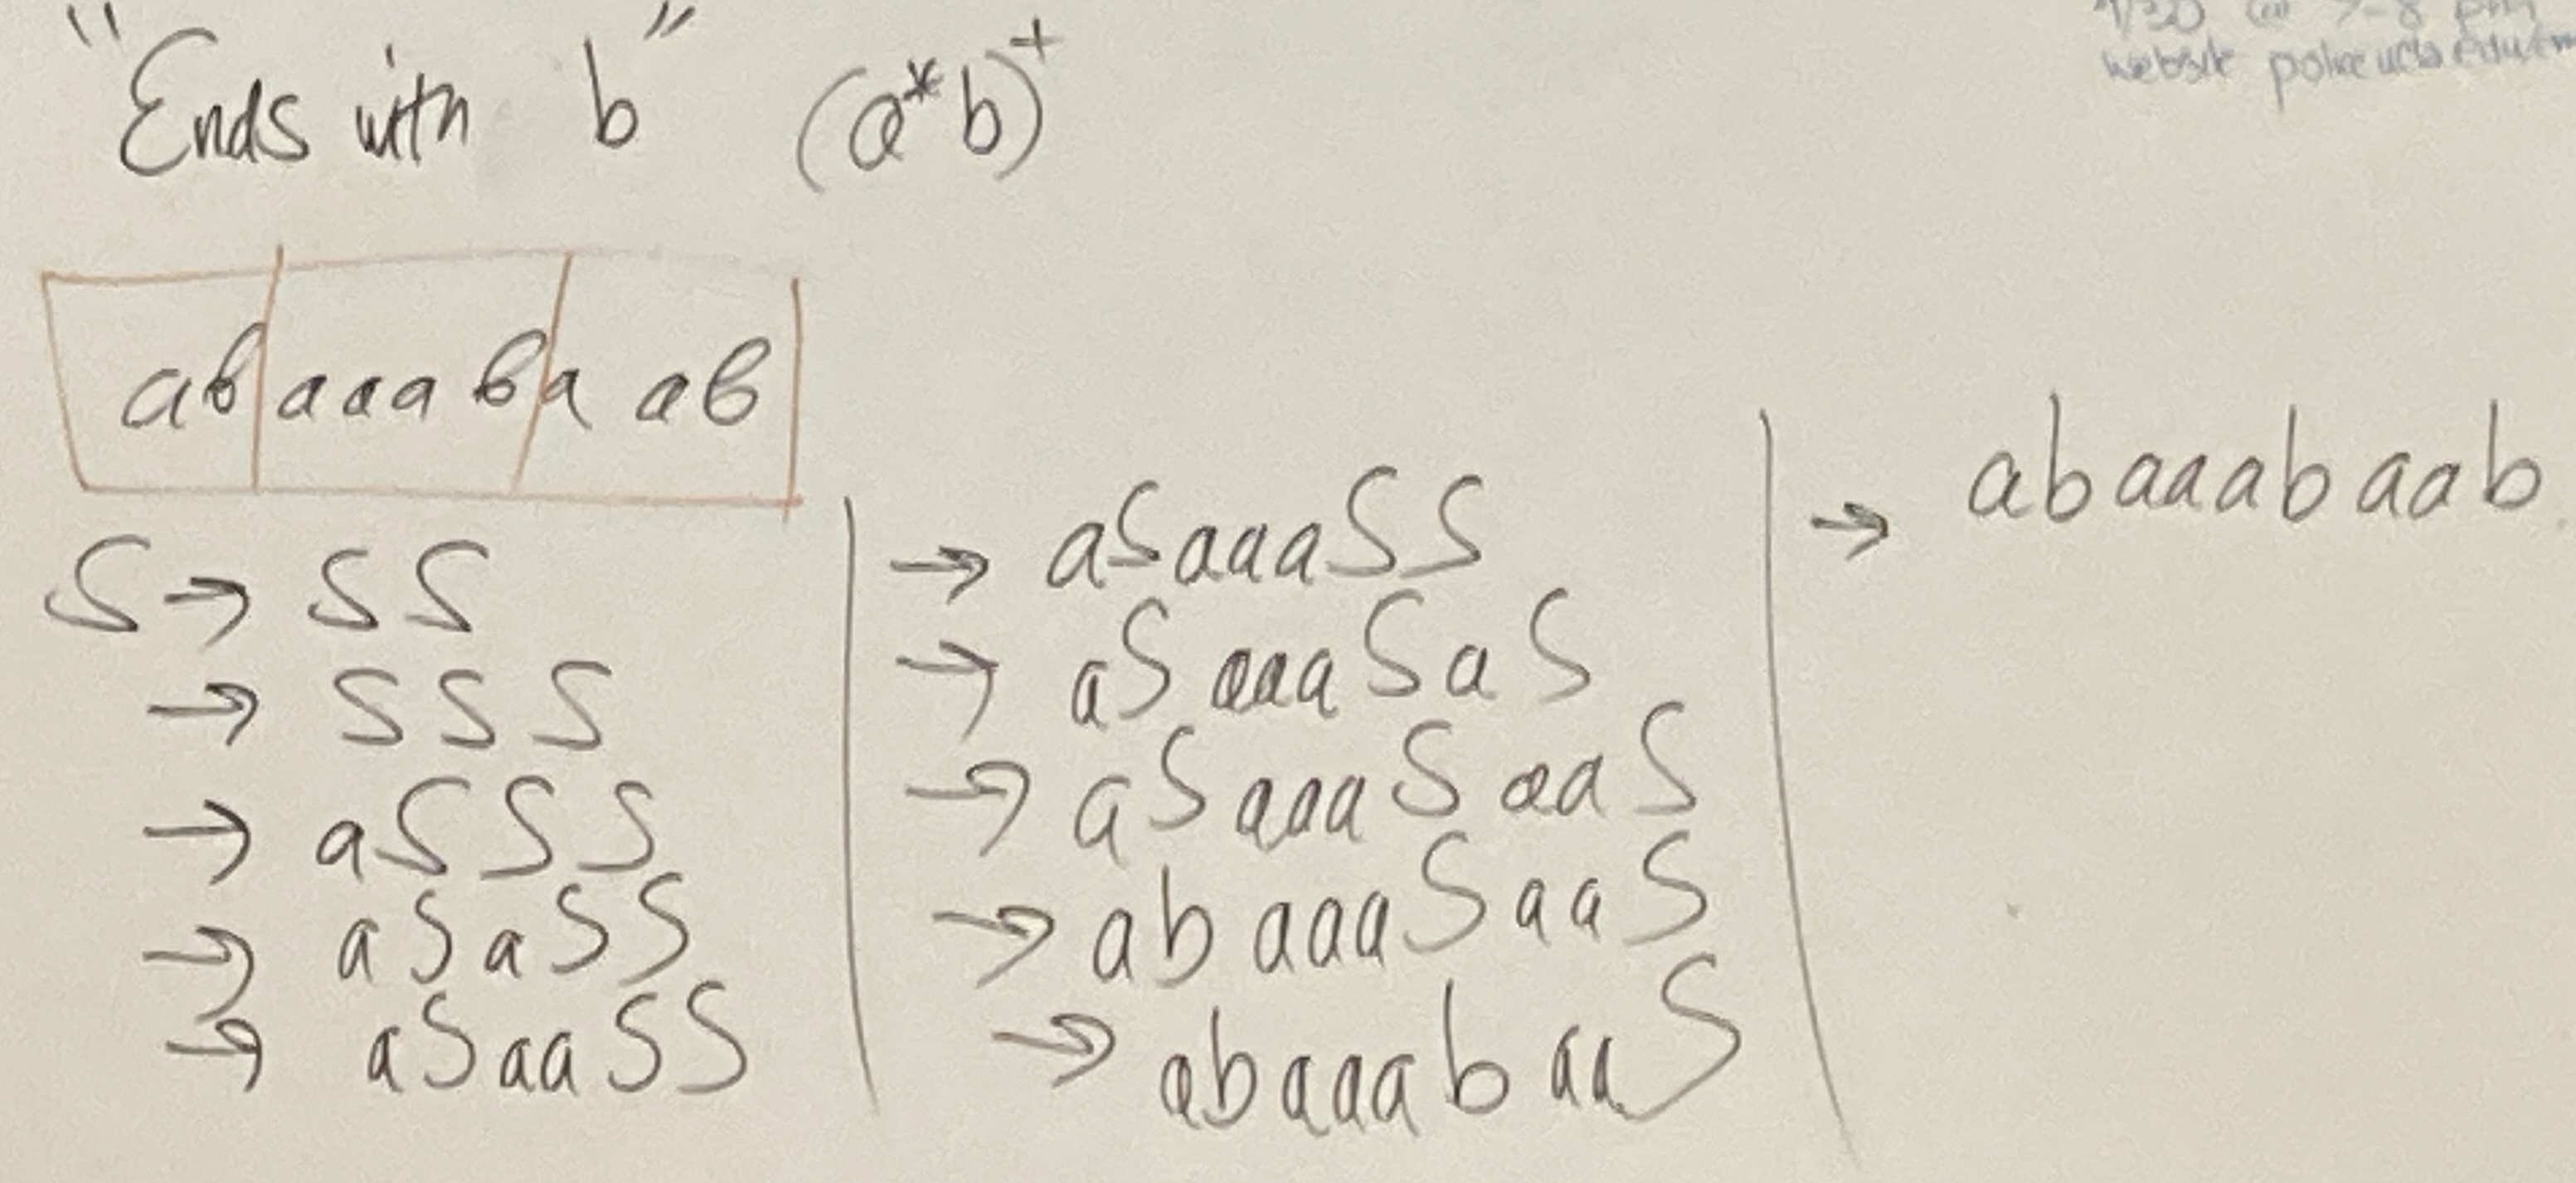 "Ends with b" (a*b)⁺
website police ucla edu
ab|aaab|aab
S → SS
→ SSS
→ aSSS
→ aSaSS
→ aSaaSS
→ aSaaaSS
→ aSaaaSaS
→ aSaaaSaaS
→ abaaaSaaS
→ abaaabaaS
→ abaaabaab